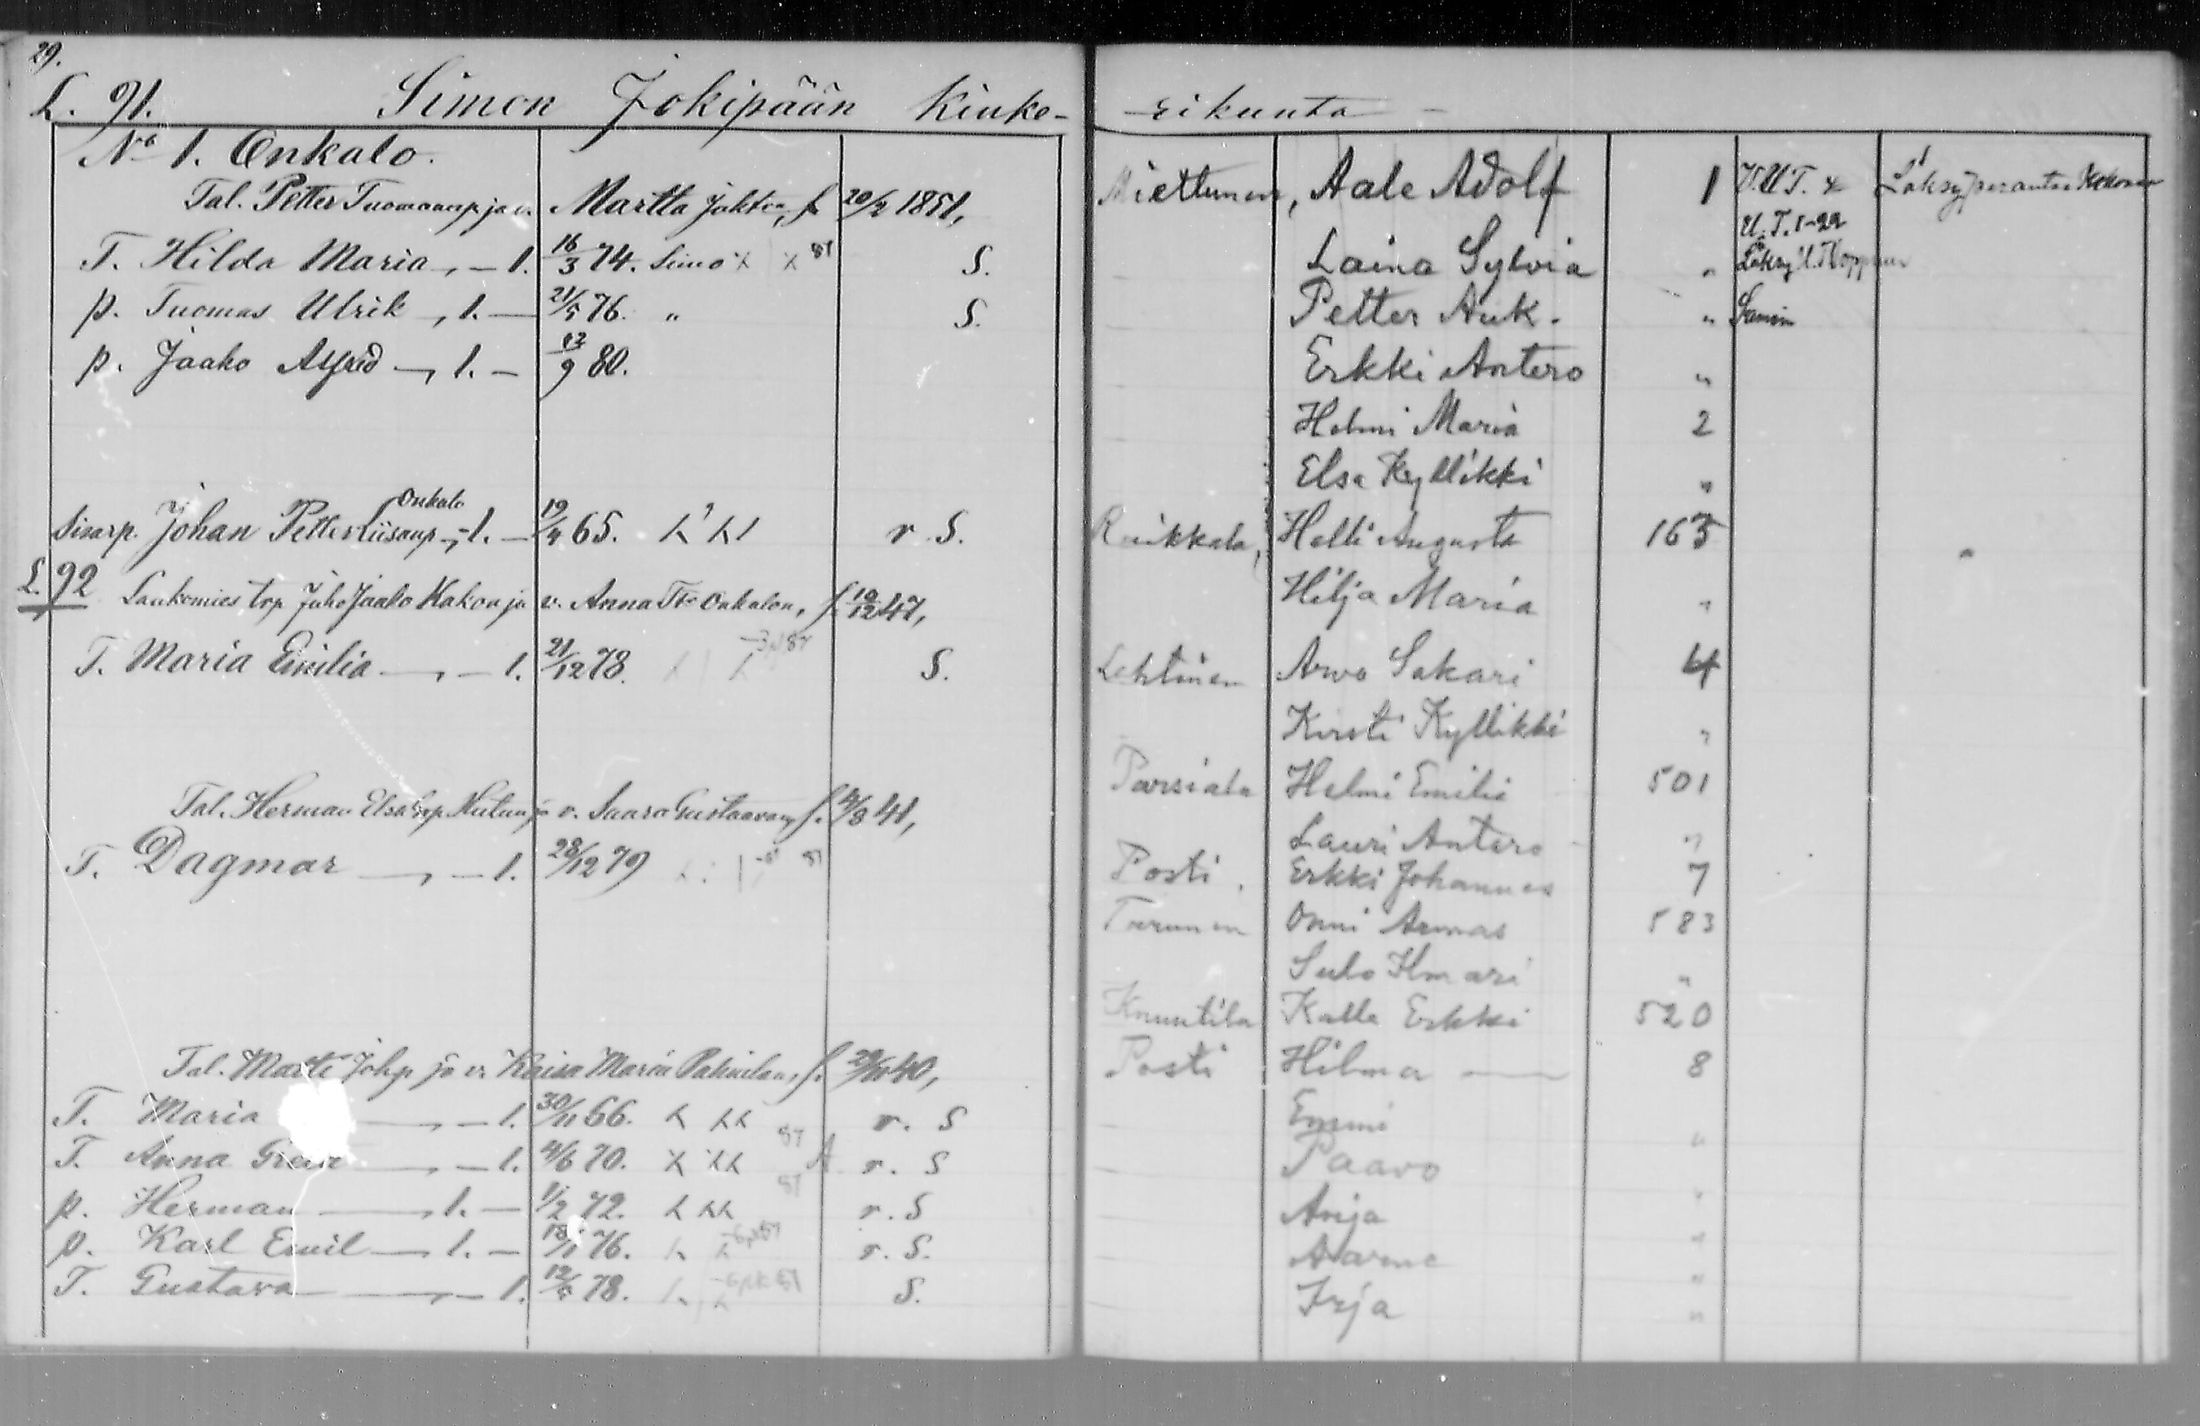 29.
L. 91. Simon Jokipään Kinke-
No 1. Onkalo.
Tal. Petter Tuomaanp ja v. Martta Jakt., s. 20/2 1851,
T. Hilda Maria „ — 1. 16/3 74. Simo x x 87 S.
p. Tuomas Ulrik „ 1. — 21/5 76. „ S.
p. Jaako Alfred „ 1. — 12/9 80.
Onkalo
Sisarp. Johan Petter Liisanp „ 1. — 19/4 65. r. S.
L. 92 Lankomies trp Juho Jaako Kakon ja v. Anna Onkalon, s. 19/12 47,
T. Maria Emilia „ — 1. 21/12 78. 87 S.
Tal. Herman v. Saara Gustaavan s. 4/3 41,
T. Dagmar „ — 1. 28/12 79 87
Tal. Matti Johp ja v. Kaisa Maria s. 40,
T. Maria „ — 1. 30/11 66. r. S
T. Anna „ — 1. 4/6 70. 87 A r. S
p. Herman „ 1. — 1/2 72. 87 r. S
p. Karl Emil „ 1. — 18/1 76. 87 r. S.
T. Gustava „ — 1. 12/5 78. 87 S.
-rikunta -
Miettunen, Aale Adolf 1 V.U.T. &
U.T. 1-22
Laina Sylvia „
Petter Auk. „
Erkki Antero „
Helmi Maria 2
Elsa Kyllikki „
Ruikkala, Helli Augusta 163
Hilja Maria „
Lehtinen Arvo Sakari 4
Kirsti Kyllikki „
Parsiala Helmi Emilie 501
Lauri Antero „
Posti. Erkki Johannes 7
Turunen Onni Armas 583
Sulo Ilmari „
Knuutila Kalle Erkki 520
Posti Hilma — 8
Emmi „
Paavo
Anja „
Aarne „
Irja „